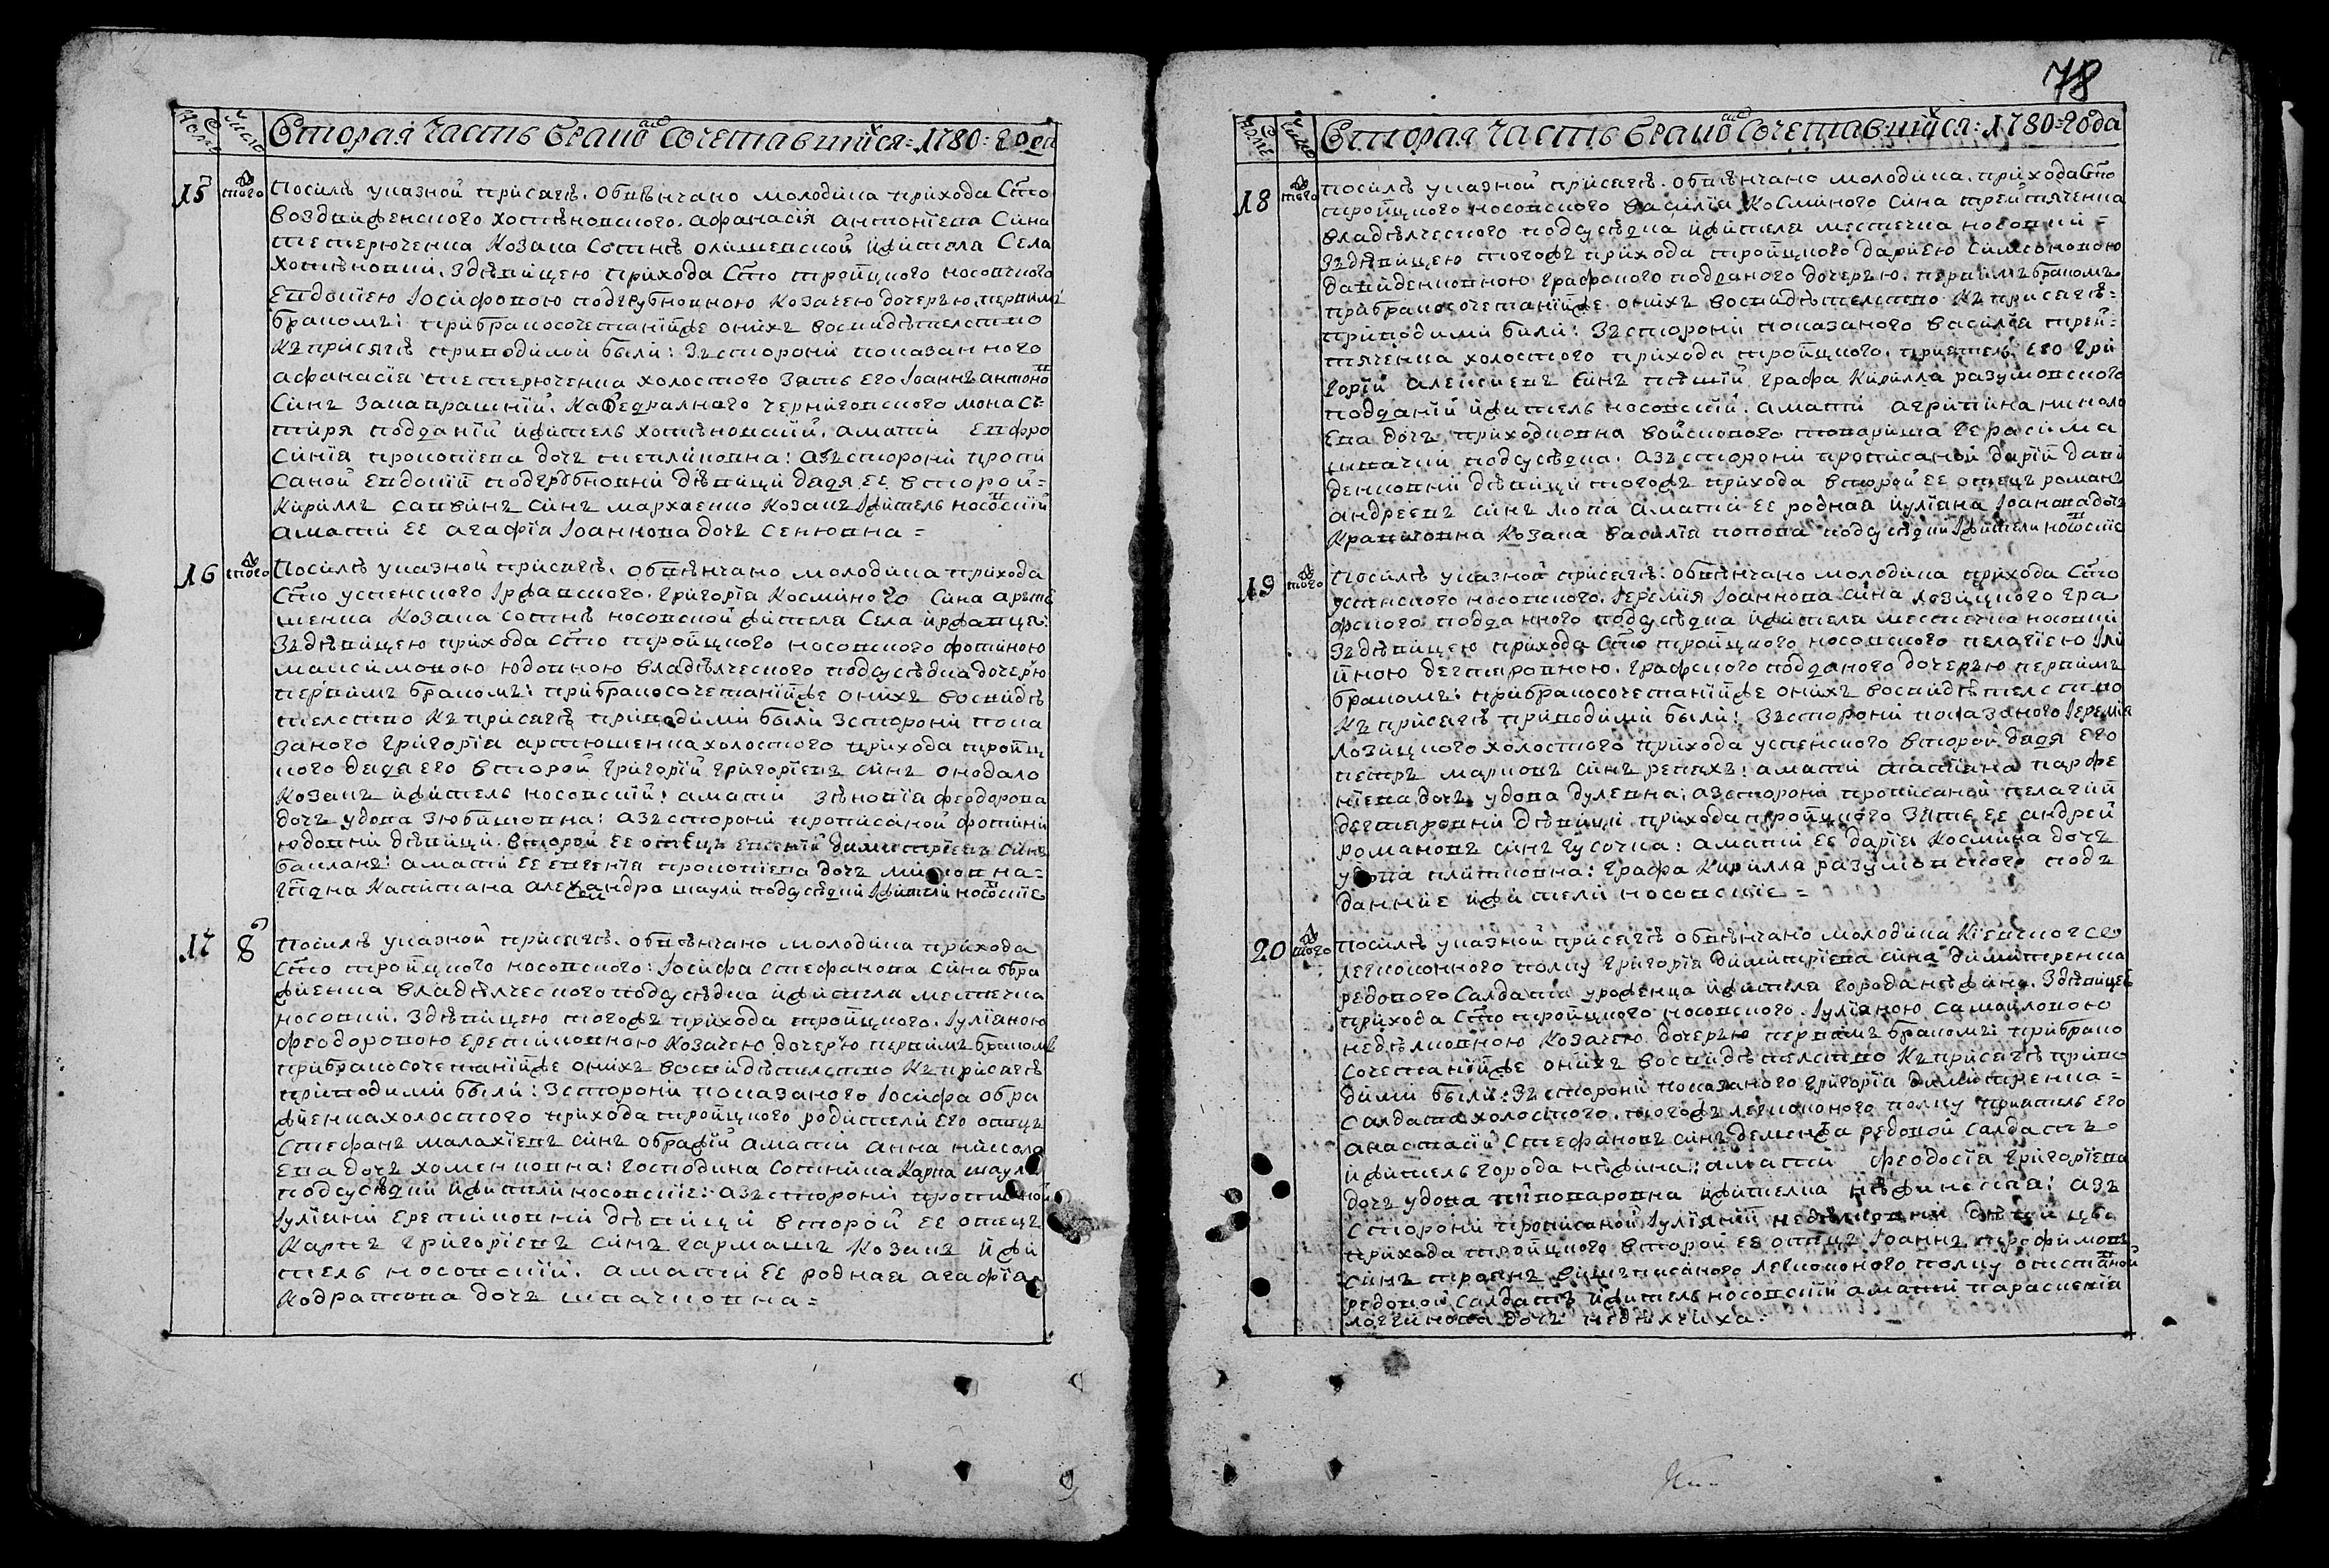 Вторая часть бракосочетавшихся: 1780: года
15 того Посилѣ указной присягѣ. Обвѣнчано молодика прихода Сто
воздвиженского хотѣновского. Афанасія антоніева Сина
тетерюченка Козака Сотнѣ олишевской жителя Села
Хотѣновки. Здѣвицею прихода Сто тройцкого носовского
Евдокіею Іосифовою поддубновною Козачею дочерю. первимъ
бракомъ: прибракосочетанійже онихъ восвидѣтелство
Къприсягѣ приводимій были: Зъсторони показанного
афанасіа тетерюченка холостого зять его Іоаннъ антоно
Синъ Закапрашній. Кафедралного чернѣговского монас
тиря подданій житель хотѣновскій. амати Евфро
Синія прокопіева дочъ тепликовна: Азъсторони пропи
саной Евдокій поддубновни дѣвици дядя ее второй=
Кирилъ саввинъ синъ мархаенко Козакъ житель носовскій
амати ее агафія Іоаннова дочъ Сенковна=
16 того Посилѣ указной присягѣ. Обвѣнчано молодика прихода
Сто успенского Іржавского. Григорія Косминого Сина артю
шенка Козака сотнѣ носовской жителя Села иржавца.
Здѣвицею прихода Сто тройцкого носовского фотиною
максимовою юдовною владѣлческого подсусѣдка дочерю
первимъ бракомъ: прибракосочетанійже онихъ восвидѣ
телство Къприсягѣ приводими были Зсторони пока
заного Григорія артюшенка холостого прихода тройц
кого дядя его второй Григорій Григоріевъ синъ
Козакъ житель носовскій: амати Зѣновіа феодорова
дочъ удова : Азъсторони прописаной фотини
юдовни дѣвици. второй ее отецъ димитріевъ синъ
бакланъ: амати ее евгенія прокопіева дочъ
Гпдна Капитана александра шаули подсусѣдки жители носовскіе
17 8 Посилѣ указной присягѣ. обвѣнчано молодика прихода
Сто тройцкого носовского: Іосифа стефанова сина обра
жіенка владѣлческого подсусѣдка жителя местечка
носовки. Здѣвицею тогожъ прихода тройцкого. Іуліаною
феодоровою еретиковною Козачею дочерю первимъ бракомъ
прибракосочетанійже онихъ восвидѣтелство Къприсягѣ
приводими были: Зсторони показаного Іосифа обра
жіенка холостого прихода тройцкого родители его отецъ
Стефанъ малахіевъ синъ ображій амати анна николa
ева дочъ хоменковна: господина сотника Карпа шаули
подсусѣдки жители носовскіе: азъсторони прописаной
Іуліани еретиковни дѣвици второй ее отецъ
Карпъ Григоріевъ синъ гармашъ Козакъ жи
тель носовскій. амати ее родная агафіа
Кодратова дочъ шпачковна=
78
Вторая часть бракосочетавшихся: 1780: года
18 того Посилѣ указной присягѣ. обвѣнчано молодика. прихода Сто
тройцкого носовского василіа Косминого сина трейтяченка
владѣлческого подсусѣдка жителя местечка носовки=
Здѣвицею тогожъ прихода тройцкого даріею Симоновою
давиденковною графского подданого дочерю. первимъ бракомъ
прибракосочетанійже онихъ восвидѣтелство Къприсягѣ=
приводими били: Зъсторони показаного василіа трей=
тяченка холостого прихода тройцкого. приятель его Гри
горій алексѣевъ синъ пѣшій графа Кирилла разумовского
подданій житель носовскій. амати агрипина никола
ева дочъ приходковна войскового товариша герасима
шпачки подсусѣдка. азъсторони прописаной дарій дави
денковни дѣвици тогожъ прихода второй ее отецъ романъ
андреевъ синъ мота амати ее родная иуліана Іоаннова дочъ
Крапивовна Козака василіа попова подсусѣдки жители носовскіе
19 того Посилѣ указной присягѣ: обвѣнчано молодика прихода Сто
успенского носовского. Іеремія Іоаннова сина лозицкого гра
фского подданного подсусѣдка жителя местечка носовки
Здѣвицею прихода Сто тройцкого носовского пелагіею Іли
иною дегтяровною. графского подданого дочерю первимъ
бракомъ: прибракосочетанійже онихъ восвидѣтелство
Къ присягѣ приводими были: Зъсторони показаного Іеремія
Лозицкого холостого прихода успенского второй дядя его
петръ марковъ синъ репихъ: амати татіана парфе
ніева дочъ удова дулевна: азсторони прописаной пелагій
дегтяровни дѣвици прихода тройцкого зять ее андрей
романовъ синъ гусочка: амати ее даріа Космина дочъ
удова плитковна: графа Кирилла разумовского подъ
данніе жители носовскіе=
20 того Посилѣ указной присягѣ обвѣнчано молодика Кіевского
легкоконного полку Григоріа димитріева сина димитренка
редового Салдата уроженца жителя города нѣжина. Здѣвицею
прихода Сто тройцкого носовского. Іуліаною самойловою
недѣлковною Козачею дочерю первимъ бракомъ: прибрако
сочетанійже онихъ восвидѣтелство Къприсягѣ приво
дими были: Зъсторони показаного Григоріа димитренка=
Салдата холостого. тогожъ легкоконого полку приятель его
анастасій Стефановъ синъ деменжа редовой Салдатъ
житель города нѣжина: амати феодосіа Григоріева
дочъ удова житиелка нѣжинская: азъ
Сторони прописаной Іуліаній недѣлковни дѣвицы
прихода тройцкого второй ее отецъ Іоаннъ трофимовъ
синъ троянъ вишъписаного легкоконого полку отставной
редовой Салдатъ житель носовскій амати параскевіа
логгинова дочъ недѣлчиха.